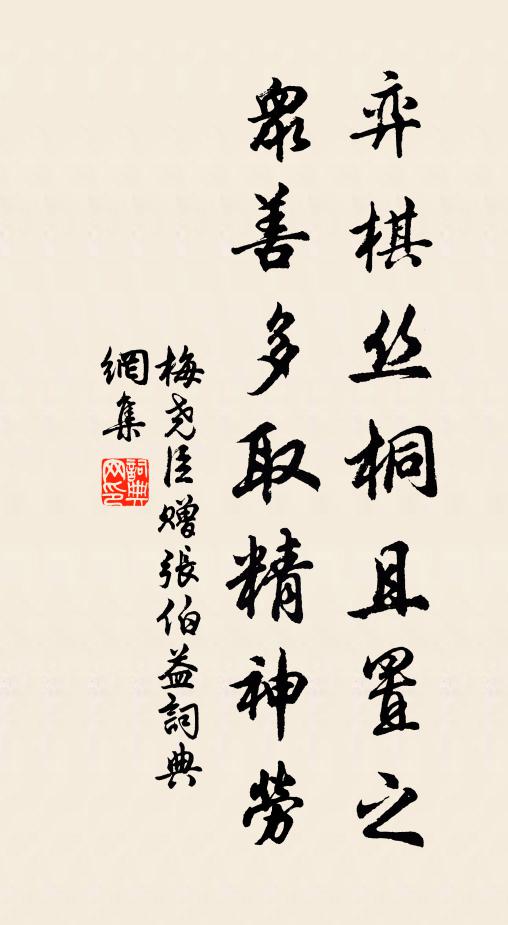 弈棋丝桐且置之
眾善多取精神勞
梅尧臣赠張伯益詞典
網集
詞典网印